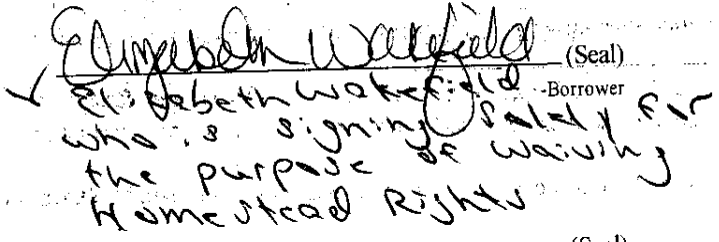 Elizabeth Wakefield (Seal)
Elizabeth Wakefield -Borrower
who is signing solely for
the purpose of waiving
Homestead Rights
(Seal)